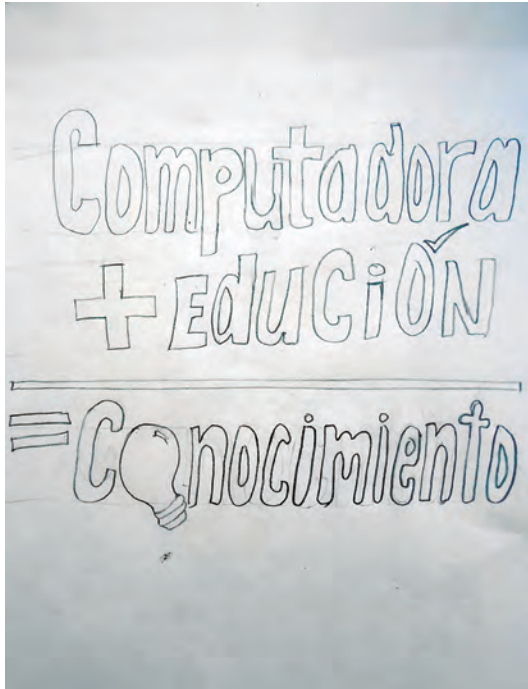 Computadora
+ EduCiÓN
= Conocimiento